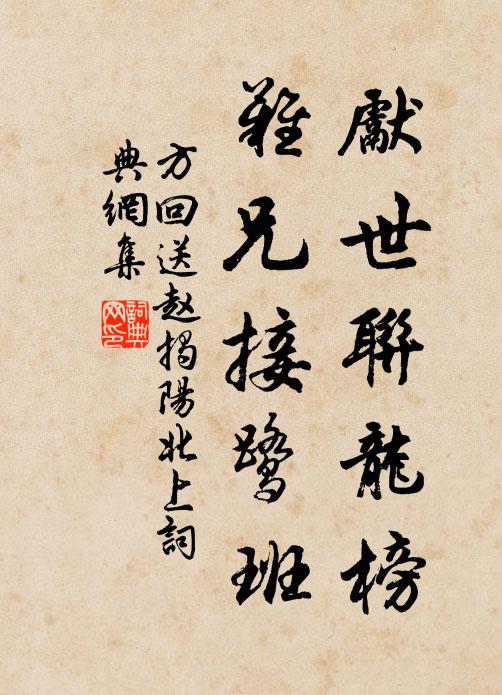 獻世聯龍榜
難兄接鷺班
方回送赵揭陽北上詞
典網集
詞典網印